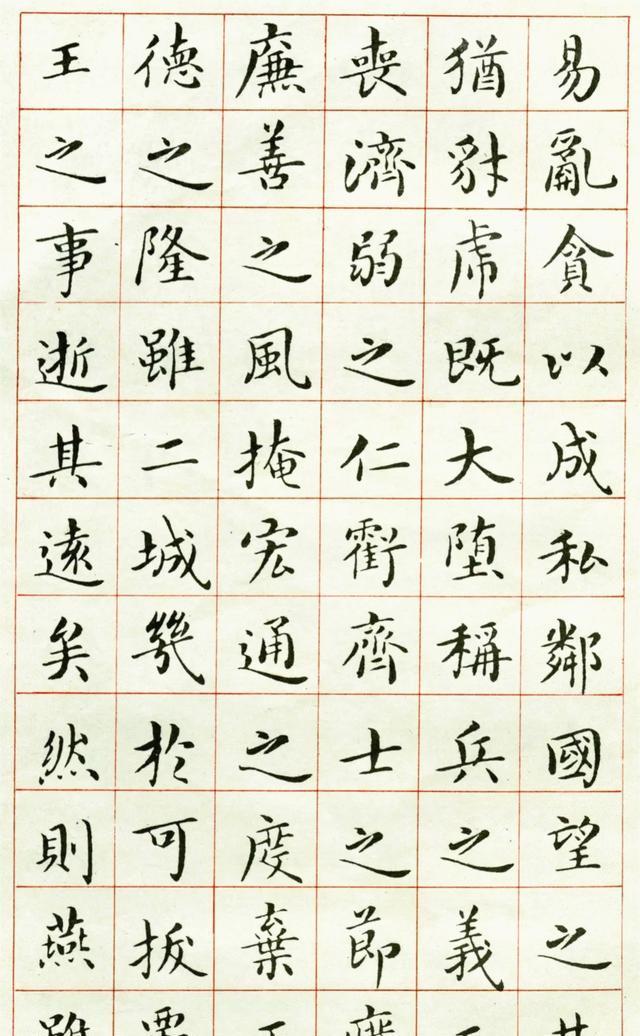 易亂貪以成私鄰國望之
猶豺虎既大堕稱兵之義
喪濟弱之仁虧齊士之節
廉善之風掩宏通之度棄
德之隆雖二城幾於可拔
王之事逝其遠矣然則燕